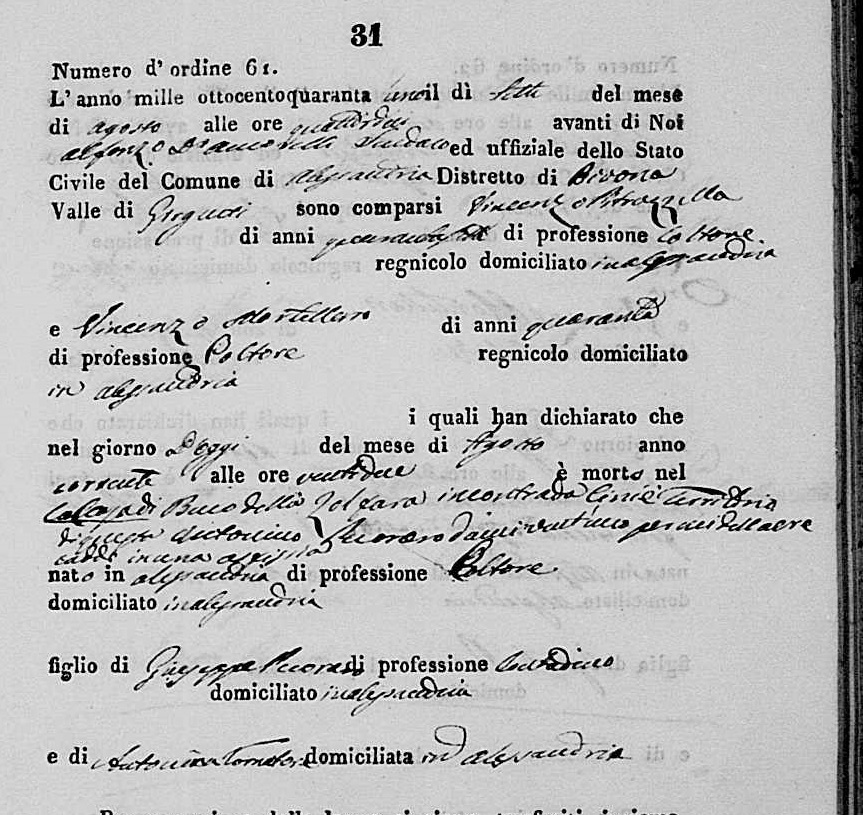 31
Numero d'ordine 61.
L'anno mille ottocentoquaranta uno il dì sette del mese
di agosto alle ore avanti di Noi
alfonzo D'amorelli Sindaco ed uffiziale dello Stato
Civile del Comune di alessandria Distretto di Bivona
Valle di Girgenti sono comparsi Vincenzo Pitrozzella
di anni di professione Coltore
regnicolo domiciliato in alessandria
e Vincenzo Mortillaro di anni quaranta
di professione Coltore regnicolo domiciliato
in alessandria
i quali han dichiarato che
nel giorno D'oggi del mese di Agosto anno
corrente alle ore ventidue è morto nel
di Buco della Solfara in contrada Territorio
di questa Antonino
in una
nato in alessandria di professione Coltore
domiciliato in alessandria
figlio di Giuseppe di professione Contadino
domiciliato in alessandria
e di Antonina Tornatore domiciliata in alessandria